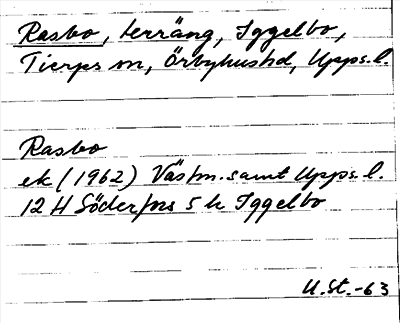 Rasbo, terräng, Iggelbo,
Tierps sn, Örbyhushd, Upps. l.
Rasbo
ek (1962) Västm. samt Upps. l.
12 H Söderfors 5 h Iggelbo
U.St.-63